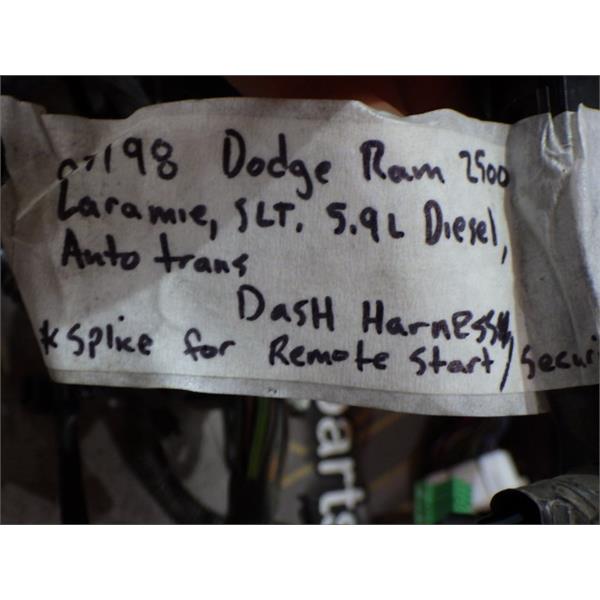 98 Dodge Ram 2500
Laramie, SLT. 5.9L Diesel,
Auto trans
DasH HarnEss
*Splice for Remote Start/Securi
parts